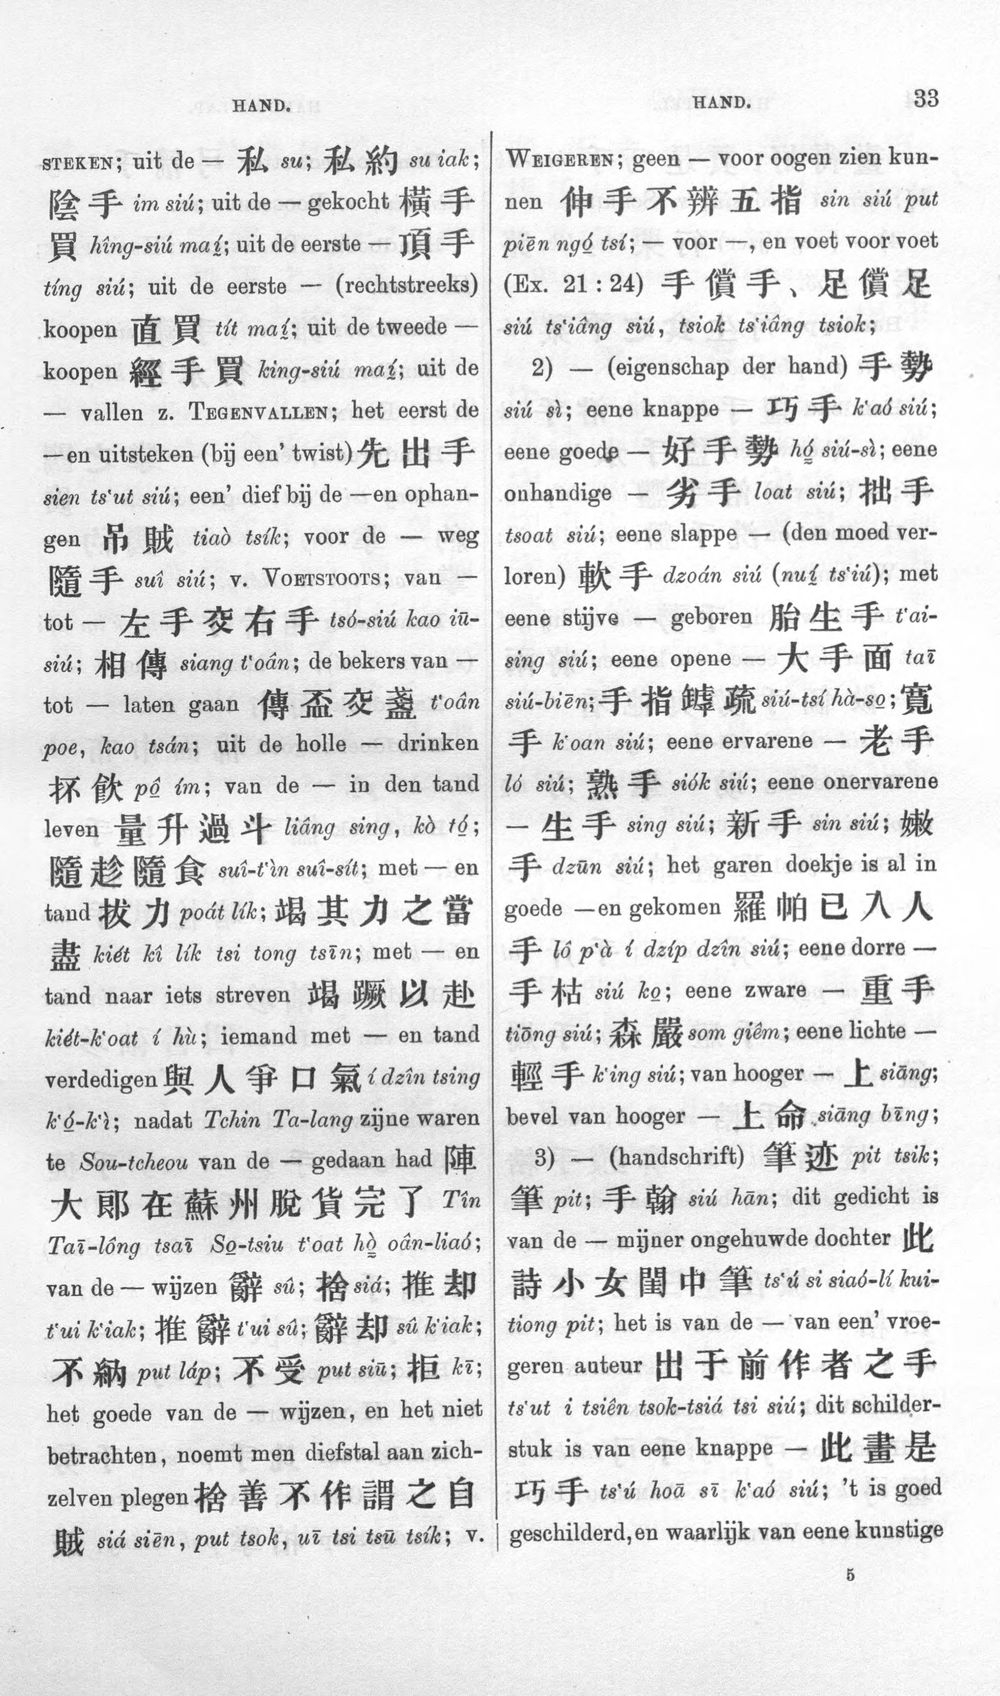 HAND.
STEKEN; uit de — 私 su; 私約 su iak;
陰手 im siú; uit de — gekocht 橫手
買 hîng-siú maí; uit de eerste — 頂手
tíng siú; uit de eerste — (rechtstreeks)
koopen 直買 tít maí; uit de tweede —
koopen 經手買 king-siú maí; uit de
— vallen z. TEGENVALLEN; het eerst de
—en uitsteken (bij een' twist) 先出手
sien ts‘ut siú; een' dief bij de —en ophan-
gen 吊賊 tiaò tsík; voor de — weg
隨手 suî siú; v. VOETSTOOTS; van —
tot — 左手交右手 tsó-siú kao iū-
siú; 相傳 siang t‘oân; de bekers van —
tot — laten gaan 傳盃交盞 t‘oân
poe, kao tsán; uit de holle — drinken
抔飲 pô ím; van de — in den tand
leven 量升過斗 liâng sing, kò tó;
隨趁隨食 suî-t‘ìn suî-sít; met — en
tand 拔力 poát lík; 竭其力之當
盡 kiét kî lík tsi tong tsīn; met — en
tand naar iets streven 竭蹶以赴
kiét-k‘oat í hù; iemand met — en tand
verdedigen 與人爭口氣 í dzîn tsing
k‘ó-k‘ì; nadat Tchin Ta-lang zijne waren
te Sou-tcheou van de — gedaan had 陣
大郎在蘇州脫貨完了 Tîn
Taī-lông tsaī So-tsiu t‘oat hò oân-liaó;
van de — wijzen 辭 sû; 捨 siá; 推却
t‘ui k‘iak; 推辭 t‘ui sû; 辭却 sû k‘iak;
不納 put láp; 不受 put siū; 拒 kī;
het goede van de — wijzen, en het niet
betrachten, noemt men diefstal aan zich-
zelven plegen 捨善不作謂之自
賊 siá siēn, put tsok, uī tsi tsū tsík; v.
HAND. 33
WEIGEREN; geen — voor oogen zien kun-
nen 伸手不辨五指 sin siú put
piēn ngó tsí; — voor —, en voet voor voet
(Ex. 21 : 24) 手償手、足償足
siú ts‘iâng siú, tsiok ts‘iâng tsiok;
2) — (eigenschap der hand) 手勢
siú sì; eene knappe — 巧手 k‘aó siú;
eene goede — 好手勢 hó siú-sì; eene
onhandige — 劣手 loat siú; 拙手
tsoat siú; eene slappe — (den moed ver-
loren) 軟手 dzoán siú (nuí ts‘iú); met
eene stijve — geboren 胎生手 t‘ai-
sing siú; eene opene — 大手面 taī
siú-biēn; 手指罅疏 siú-tsí hà-so; 寬
手 k‘oan siú; eene ervarene — 老手
ló siú; 熟手 siók siú; eene onervarene
— 生手 sing siú; 新手 sin siú; 嫩
手 dzūn siú; het garen doekje is al in
goede —en gekomen 羅帕已入人
手 lô p‘à í dzíp dzîn siú; eene dorre —
手枯 siú ko; eene zware — 重手
tiōng siú; 森嚴 som giêm; eene lichte —
輕手 k‘ing siú; van hooger — 上 siāng;
bevel van hooger — 上命 siāng bīng;
3) — (handschrift) 筆迹 pit tsik;
筆 pit; 手翰 siú hān; dit gedicht is
van de — mijner ongehuwde dochter 此
詩小女閨中筆 ts‘ú si siaó-lí kui-
tiong pit; het is van de — van een' vroe-
geren auteur 出于前作者之手
ts‘ut i tsiên tsok-tsiá tsi siú; dit schilder-
stuk is van eene knappe — 此畫是
巧手 ts‘ú hoā sī k‘aó siú; 't is goed
geschilderd, en waarlijk van eene kunstige
5